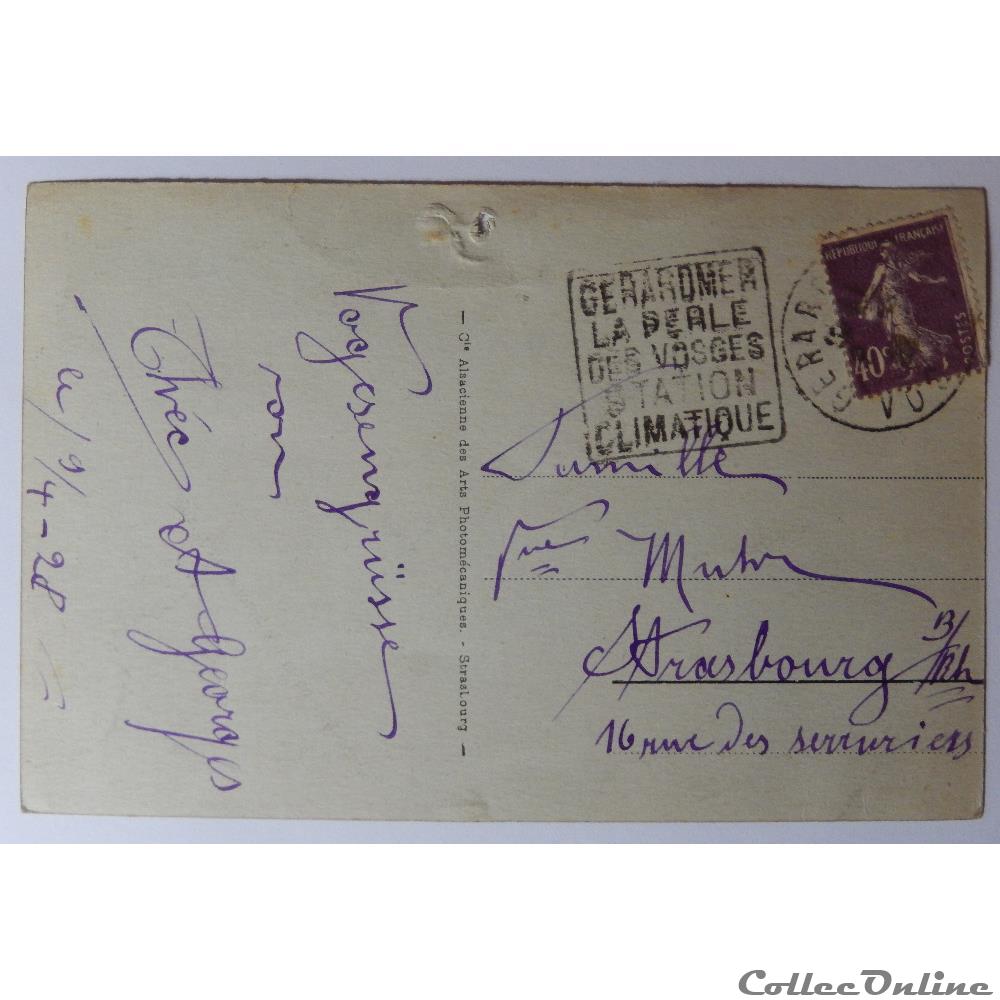 Vogesengrüsse
von
& Georges
le 19/4-28
— Cie Alsacienne des Arts Photomécaniques. - Strasbourg —
GERARDMER
LA PERLE
DES VOSGES
STATION
CLIMATIQUE
GERAR
VO
REPUBLIQUE FRANÇAISE
POSTES
40c
Famille
Strasbourg B/Rh
16 rue des serruriers
CollecOnline